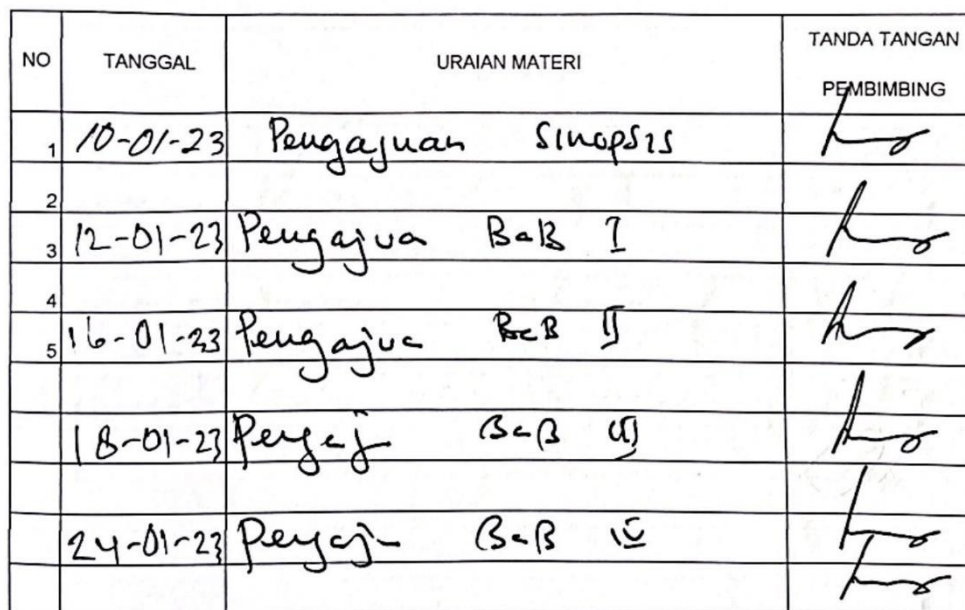 NO TANGGAL URAIAN MATERI TANDA TANGAN PEMBIMBING
1 10-01-23 Pengajuan Sinopsis
2
3 12-01-23 Pengajua BaB I
4
5 16-01-23 Pengajua BaB II
18-01-23 Pengaj BaB III
24-01-23 Pengaj BaB IV